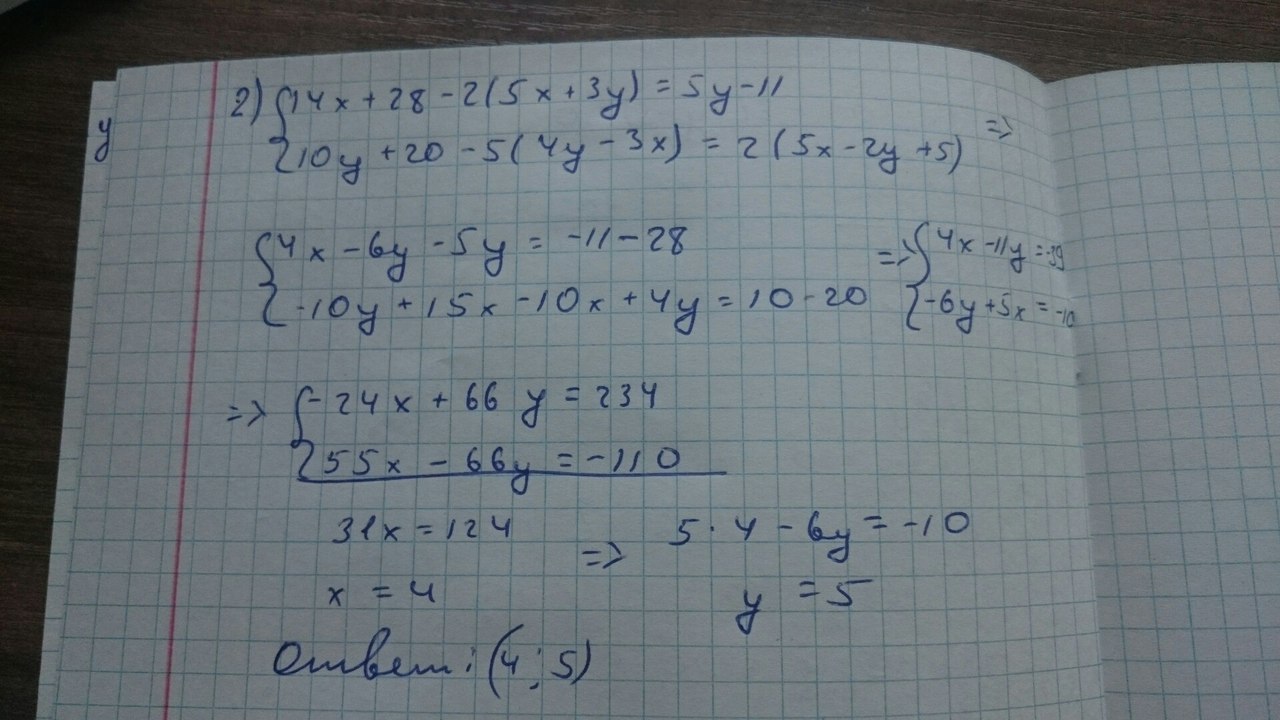 y
2) { 14x + 28 - 2(5x + 3y) = 5y - 11
{ 10y + 20 - 5(4y - 3x) = 2(5x - 2y + 5) =>
{ 4x - 6y - 5y = -11 - 28
{ -10y + 15x - 10x + 4y = 10 - 20
=> { 4x - 11y = -39
{ -6y + 5x = -10
=> { -24x + 66y = 234
{ 55x - 66y = -110
31x = 124
x = 4
=> 5·4 - 6y = -10
y = 5
Ответ: (4; 5)